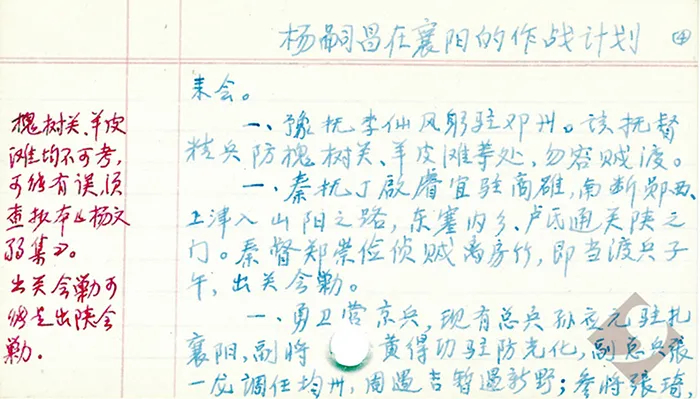 杨嗣昌在襄阳的作战计划 ㊃
来会。
一、豫抚李仙风躬驻邓州。该抚督
精兵防槐树关、羊皮滩等处,勿容贼渡。
一、秦抚丁啟睿宜驻商雒,南断郧西、
上津入山阳之路,东塞内乡、卢氏通关陕之
门。秦督郑崇俭侦贼离房竹,即当渡兵子
午,出关会勦。
一、勇卫营京兵,现有总兵孙应元驻扎
襄阳,副将 黄得功驻防光化,副总兵張
一龙调任均州,周遇吉暂过新野;参将张琦,
槐树关、羊皮
滩均不可考,
可能有误,须
查抄本《杨文
弱集》。
出关会勦可
能是出陕会
勦.